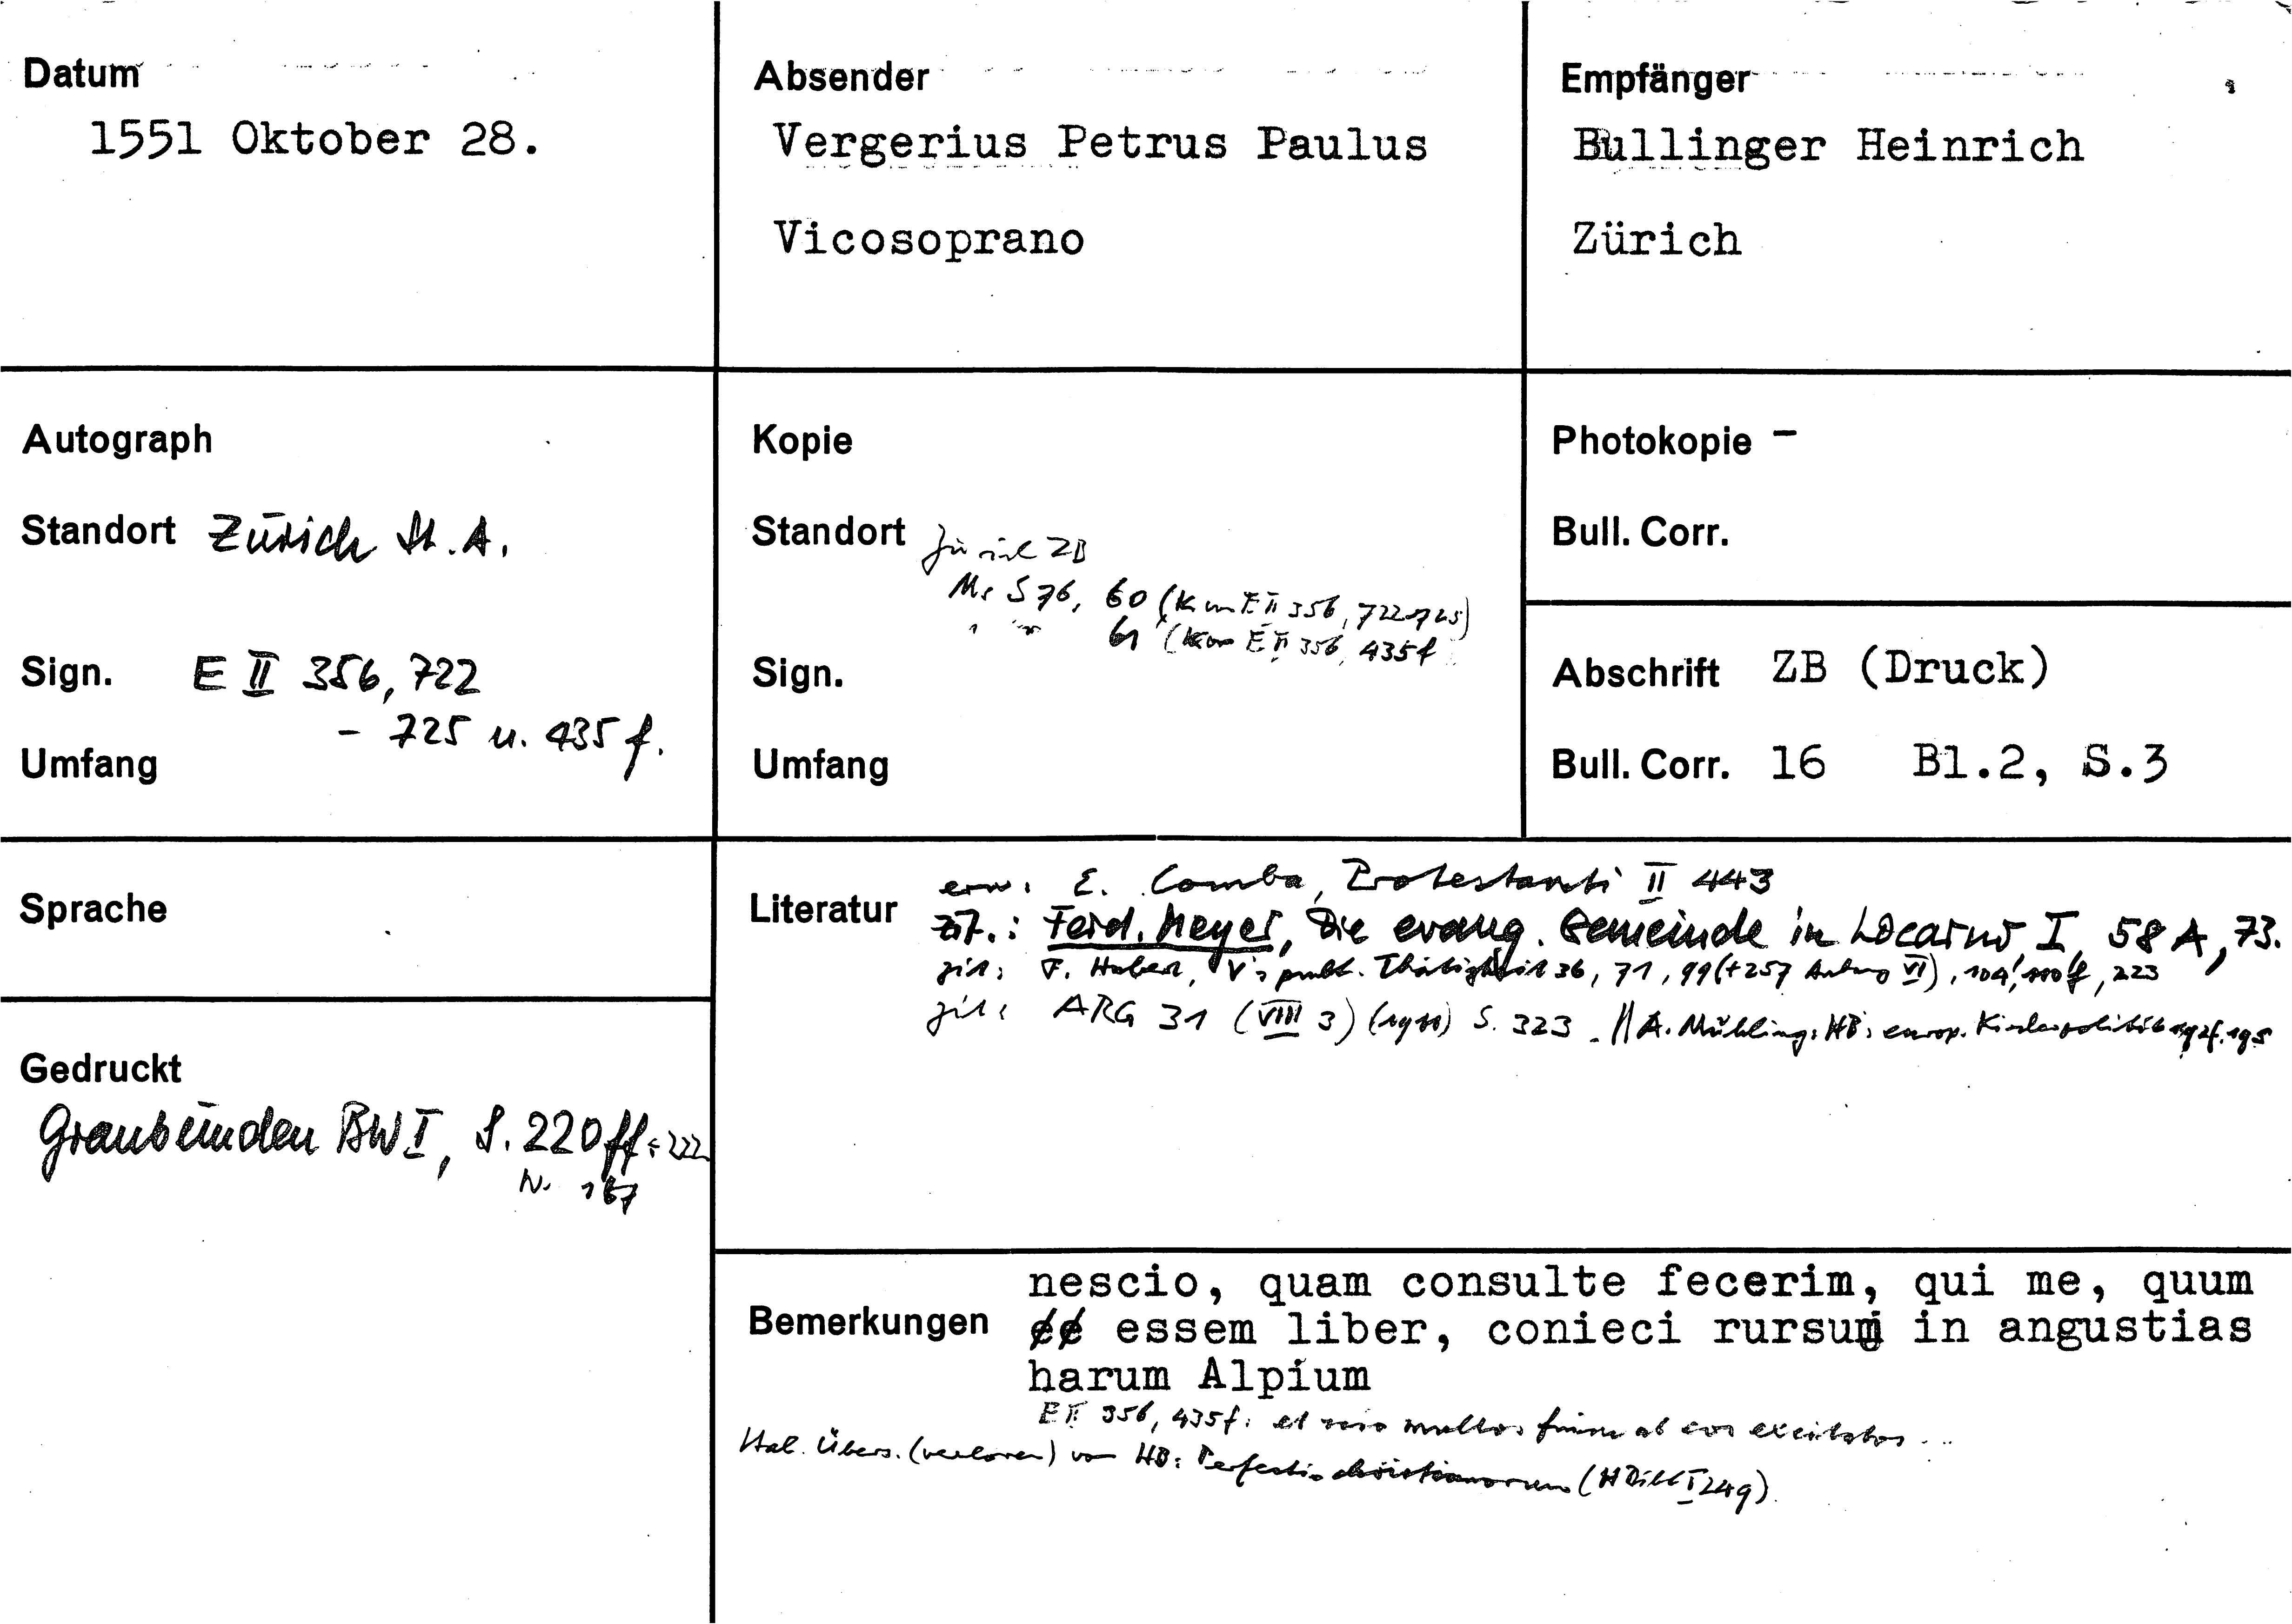 Datum
1551 Oktober 28.
Absender
Vergerius Petrus Paulus
Vicosoprano
Empfänger
Bullinger Heinrich
Zürich
Autograph
Standort Zürich St. A.
Sign. E II 356, 722
- 725 u. 435 f.
Umfang
Kopie
Standort Zürich ZB
Ms S 76, 60 (K von E II 356, 722-725)
61 (K von E II 356, 435f
Sign.
Umfang
Photokopie -
Bull. Corr.
Abschrift ZB (Druck)
Bull. Corr. 16 Bl.2, S.3
Sprache
Gedruckt
Graubünden BW I, S. 220ff-222
Nr. 167
Literatur erw. E. Comba, Protestanti II 443
zit.: Ferd. Meyer, Die evang. Gemeinde in Locarno I, 58 A, 73.
zit: F. Hubert, V's publ. Thätigkeit 36, 71, 99 (+257 Anhang VI), 104, 110f, 223
zit: ARG 31 (VIII 3) (1911) S. 323. // A. Mühling: HB's europ. Kirchenpolitik 192f. 195
Bemerkungen
nescio, quam consulte fecerim, qui me, quum
essem liber, conieci rursum in angustias
harum Alpium
E II 356, 435f: et multos ab eos excitatos...
Ital. Übers. (verloren) von HB: Perfectio christianorum (HBibl I 249)